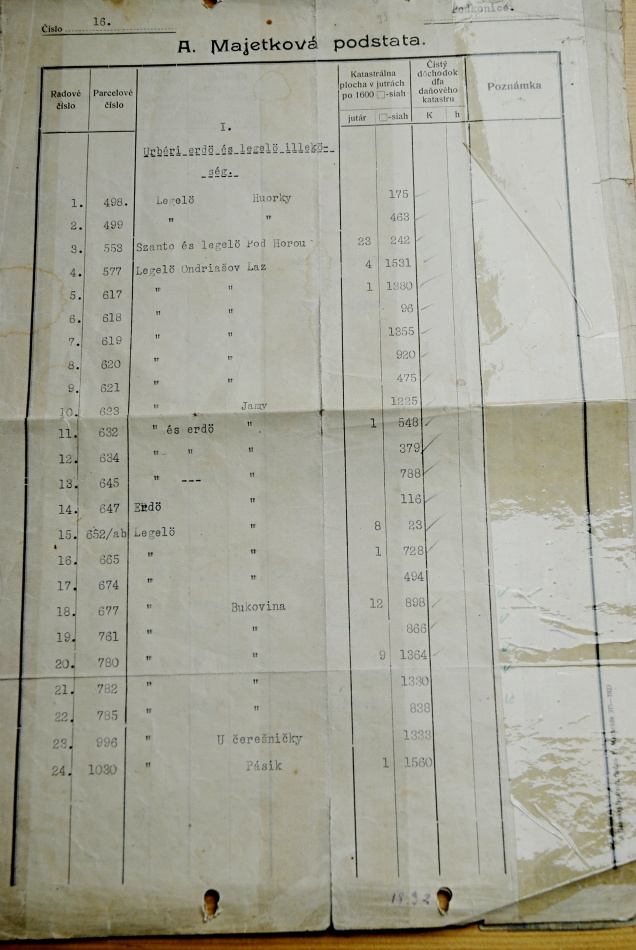 Číslo 16.
Podkonice.
A. Majetková podstata.
Radové číslo
Parcelové číslo
Katastrálna plocha v jutrách po 1600 □-siah
jutár □-siah
Čistý dôchodok dľa daňového katastru
K h
Poznámka
I.
Urbéri erdő és legelő illekö-
ség.
1. 498. Legelő Huorky 175
2. 499 " " 463
3. 553 Szanto és legelő Pod Horou 23 242
4. 577 Legelő Ondriašov Laz 4 1531
5. 617 " " 1 1380
6. 618 " " 96
7. 619 " " 1355
8. 620 " " 920
9. 621 " " 475
10. 623 " Jamy 1225
11. 632 " és erdő " 1 548
12. 634 " " " 379
13. 645 " --- " 788
14. 647 Erdő " 116
15. 652/ab Legelő " 8 23
16. 665 " " 1 728
17. 674 " " 494
18. 677 " Bukovina 12 898
19. 761 " " 866
20. 780 " " 9 1364
21. 782 " " 1330
22. 785 " " 838
23. 996 " U čerešničky 1333
24. 1030 " Pásik 1 1560